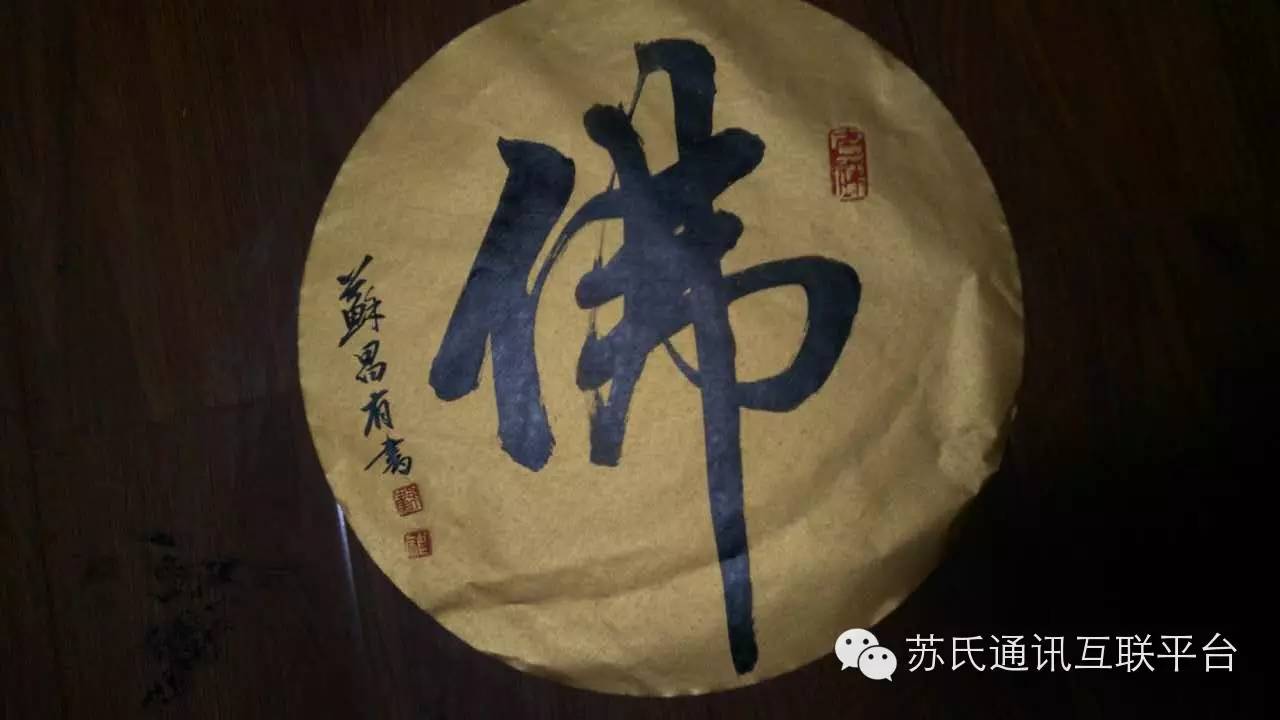 佛
蘇昌有書
苏氏通讯互联平台